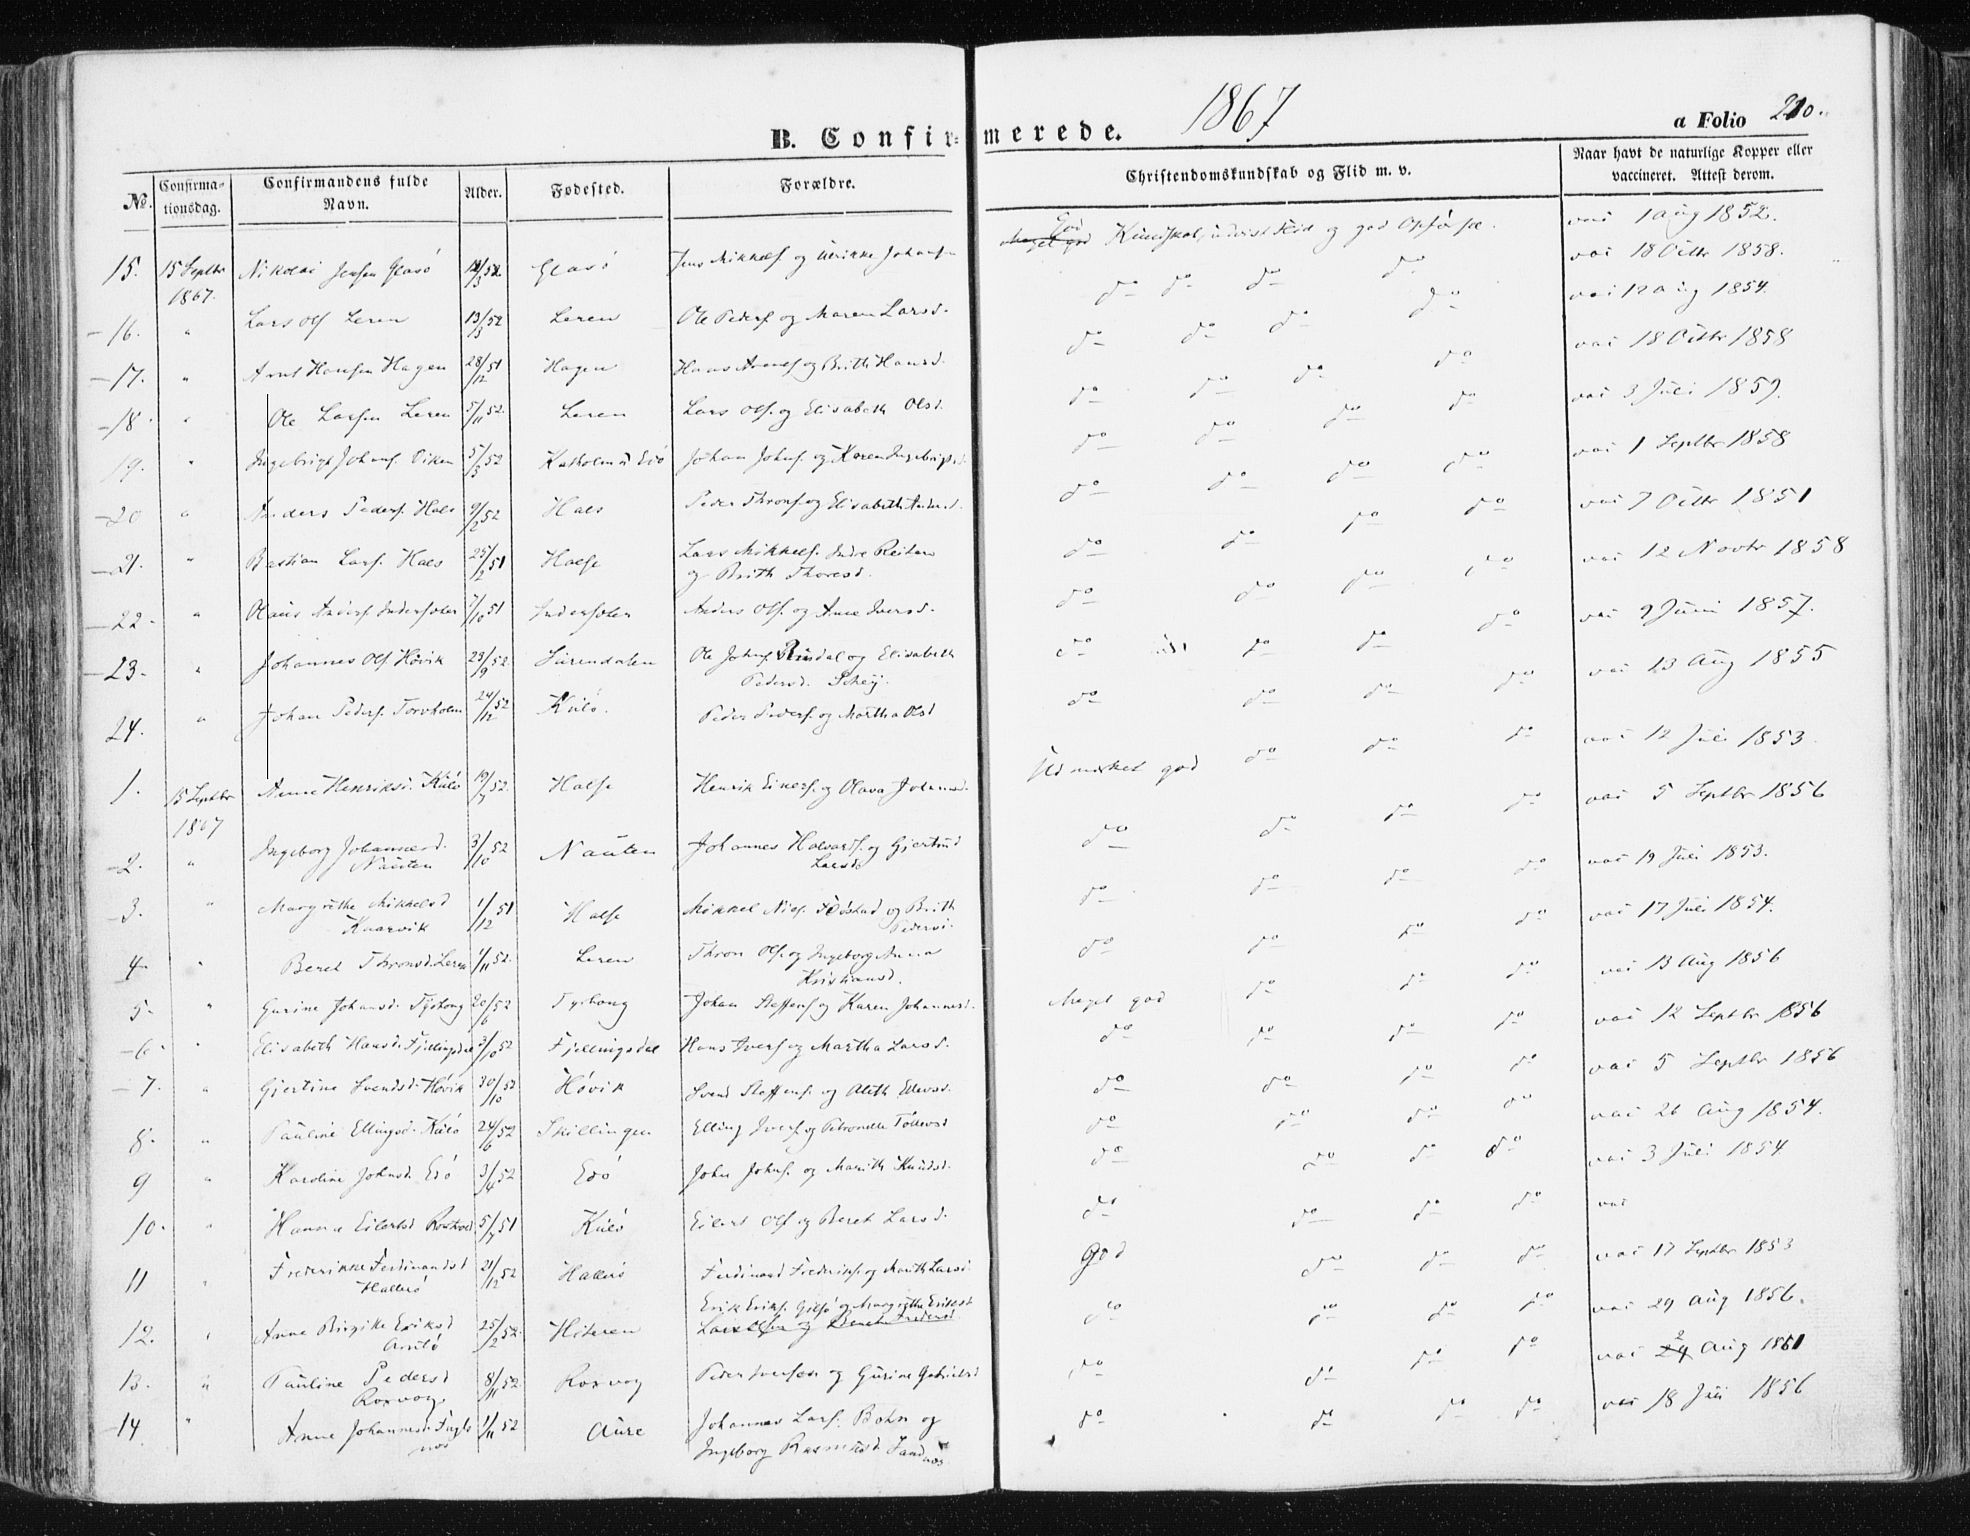 1867
B. Confir- merede.
a Folio 210.
No.
Confirma-
tionsdag.
Confirmandens fulde
Navn.
Alder.
Fødested.
Forældre.
Christendomskundskab og Flid m. v.
Naar havt de naturlige Kopper eller
vaccineret. Attest derom.
God
Meget god Kundskab, udvist Flid og god Opførsel. vac 1 Aug 1852.
15. 15 Septbr Nikolai Jensen Glasö 52 Glasö Jens Mikkels. og Ulrikke Johans do do do do vac 18 Octbr 1858.
1867.
16. " Lars Ols Leren 13/3 52 Leren Ole Peders. og Maren Larsd. do do do do vac 12 Aug 1854.
17. " Arnt Hansen Hagen 28/12 51 Hagen Hans Arnts og Brith Hansd. do do do do vac 18 Octbr 1858
18. " Ole Larsen Leren 5/11 52. Leren Lars Ols. og Elisabeth Olsd. do do do do vac 3 Juli 1859.
19. " Ingebrigt Johns. Viken 5/3 52 Johan Johns. og Karen Ingebrigtsd. do do do do vac 1 Septbr 1858
20 " Anders Peders. Hals 9/2 52 Hals Peder Throns. og Elisabeth Andersd. do do do do vac 7 Octbr 1851
21. " Bastian Lars. Hals 25/2 51 Halse Lars Mikkels. Indre Reiten do do do do vac 12 Novbr 1858
og Brith Thoresd.
22. " Olaus Anders. 7/10 51 Anders Ols. og Ane Iversd. do do do do vac 9 Juni 1857.
23. " Johannes Ols. Hövik 23/9 52. Surendalen Ole Johns. Rindal og Elisabeth do do do vac 13 Aug 1855
Pedersd.
24. " Johan Peders. Torvholm 24/12 52 Kulö. Peder Peders. og Martha Olsd Udmærket god do do do vac 12 Juli 1853.
1. 15 Septbr Anne Henriksd. Kulö 19/7 52. Halse Henrik Einers. og Olava Johansd. do do do do vac 5 Septbr 1856
1867
2. " Ingeborg Johannesd. 3/10 52 Nauten Johannes Halvards. og Gjertrud do do do do vac 19 Juli 1853.
Nauten Larsd.
3. " Margrethe Mikkelsd 1/12 51 Halse Mikkel Niels. og Brith do do do do vac 17 Juli 1854.
Kaarvik Pedersd.
4. " Beret Thronsd. Leren 1/11 52. Leren Thron Ols. og Ingeborg Anna do do do vac 13 Aug 1856
Kristiansd.
5. " Gurine Johansd. 20/6 52 Johan Steffens. og Karen Johannesd. Meget god do do do vac 12 Septbr 1856
6. " Elisabeth Hansd. Fjellingsdal 52 Fjellingsdal Hans Ivers. og Martha Larsd. do do do do vac 5 Septbr 1856
7. " Gjertine Svendsd. Hövik 30/10 52 Hövik Svend Steffens. og do do do do vac 26 Aug 1854.
8. " Pauline Ellingsd. Kulö 24/6 52 Skillingen Elling Ivers. og Petronelle do do do do vac 3 Juli 1854
9 " Karoline Johnsd. Edö 3/4 52 Edö John Johns. og Marith Knudsd. do do do do vac
10. " Hanna Eilertsd 51 Kulö Eilert Ols. og Beret Larsd. God do do do vac 17 Septbr 1853
11 " Frederikke Ferdinandsd 21/12 52 Hallerö Ferdinand Frederiks. og Marith Larsd. do do do do vac 29 Aug 1856.
Hallerö
Erik Eriks. og Margrethe Eriksd
12. " Anne Birgitte Eriksd 25/2 52. Hiteren do do do do vac 2 Aug 1861
13. " Pauline Pedersd 8/11 52. Roxvog Peder Iversen og Gurine Gabrielsd do do do do vac 18 Juli 1856
Roxvog
14 " Anne Johannesd. Fugls 1/11 52 Aure Johannes Lars. Bohn og
nes Ingeborg Rasmusd Sandnæs